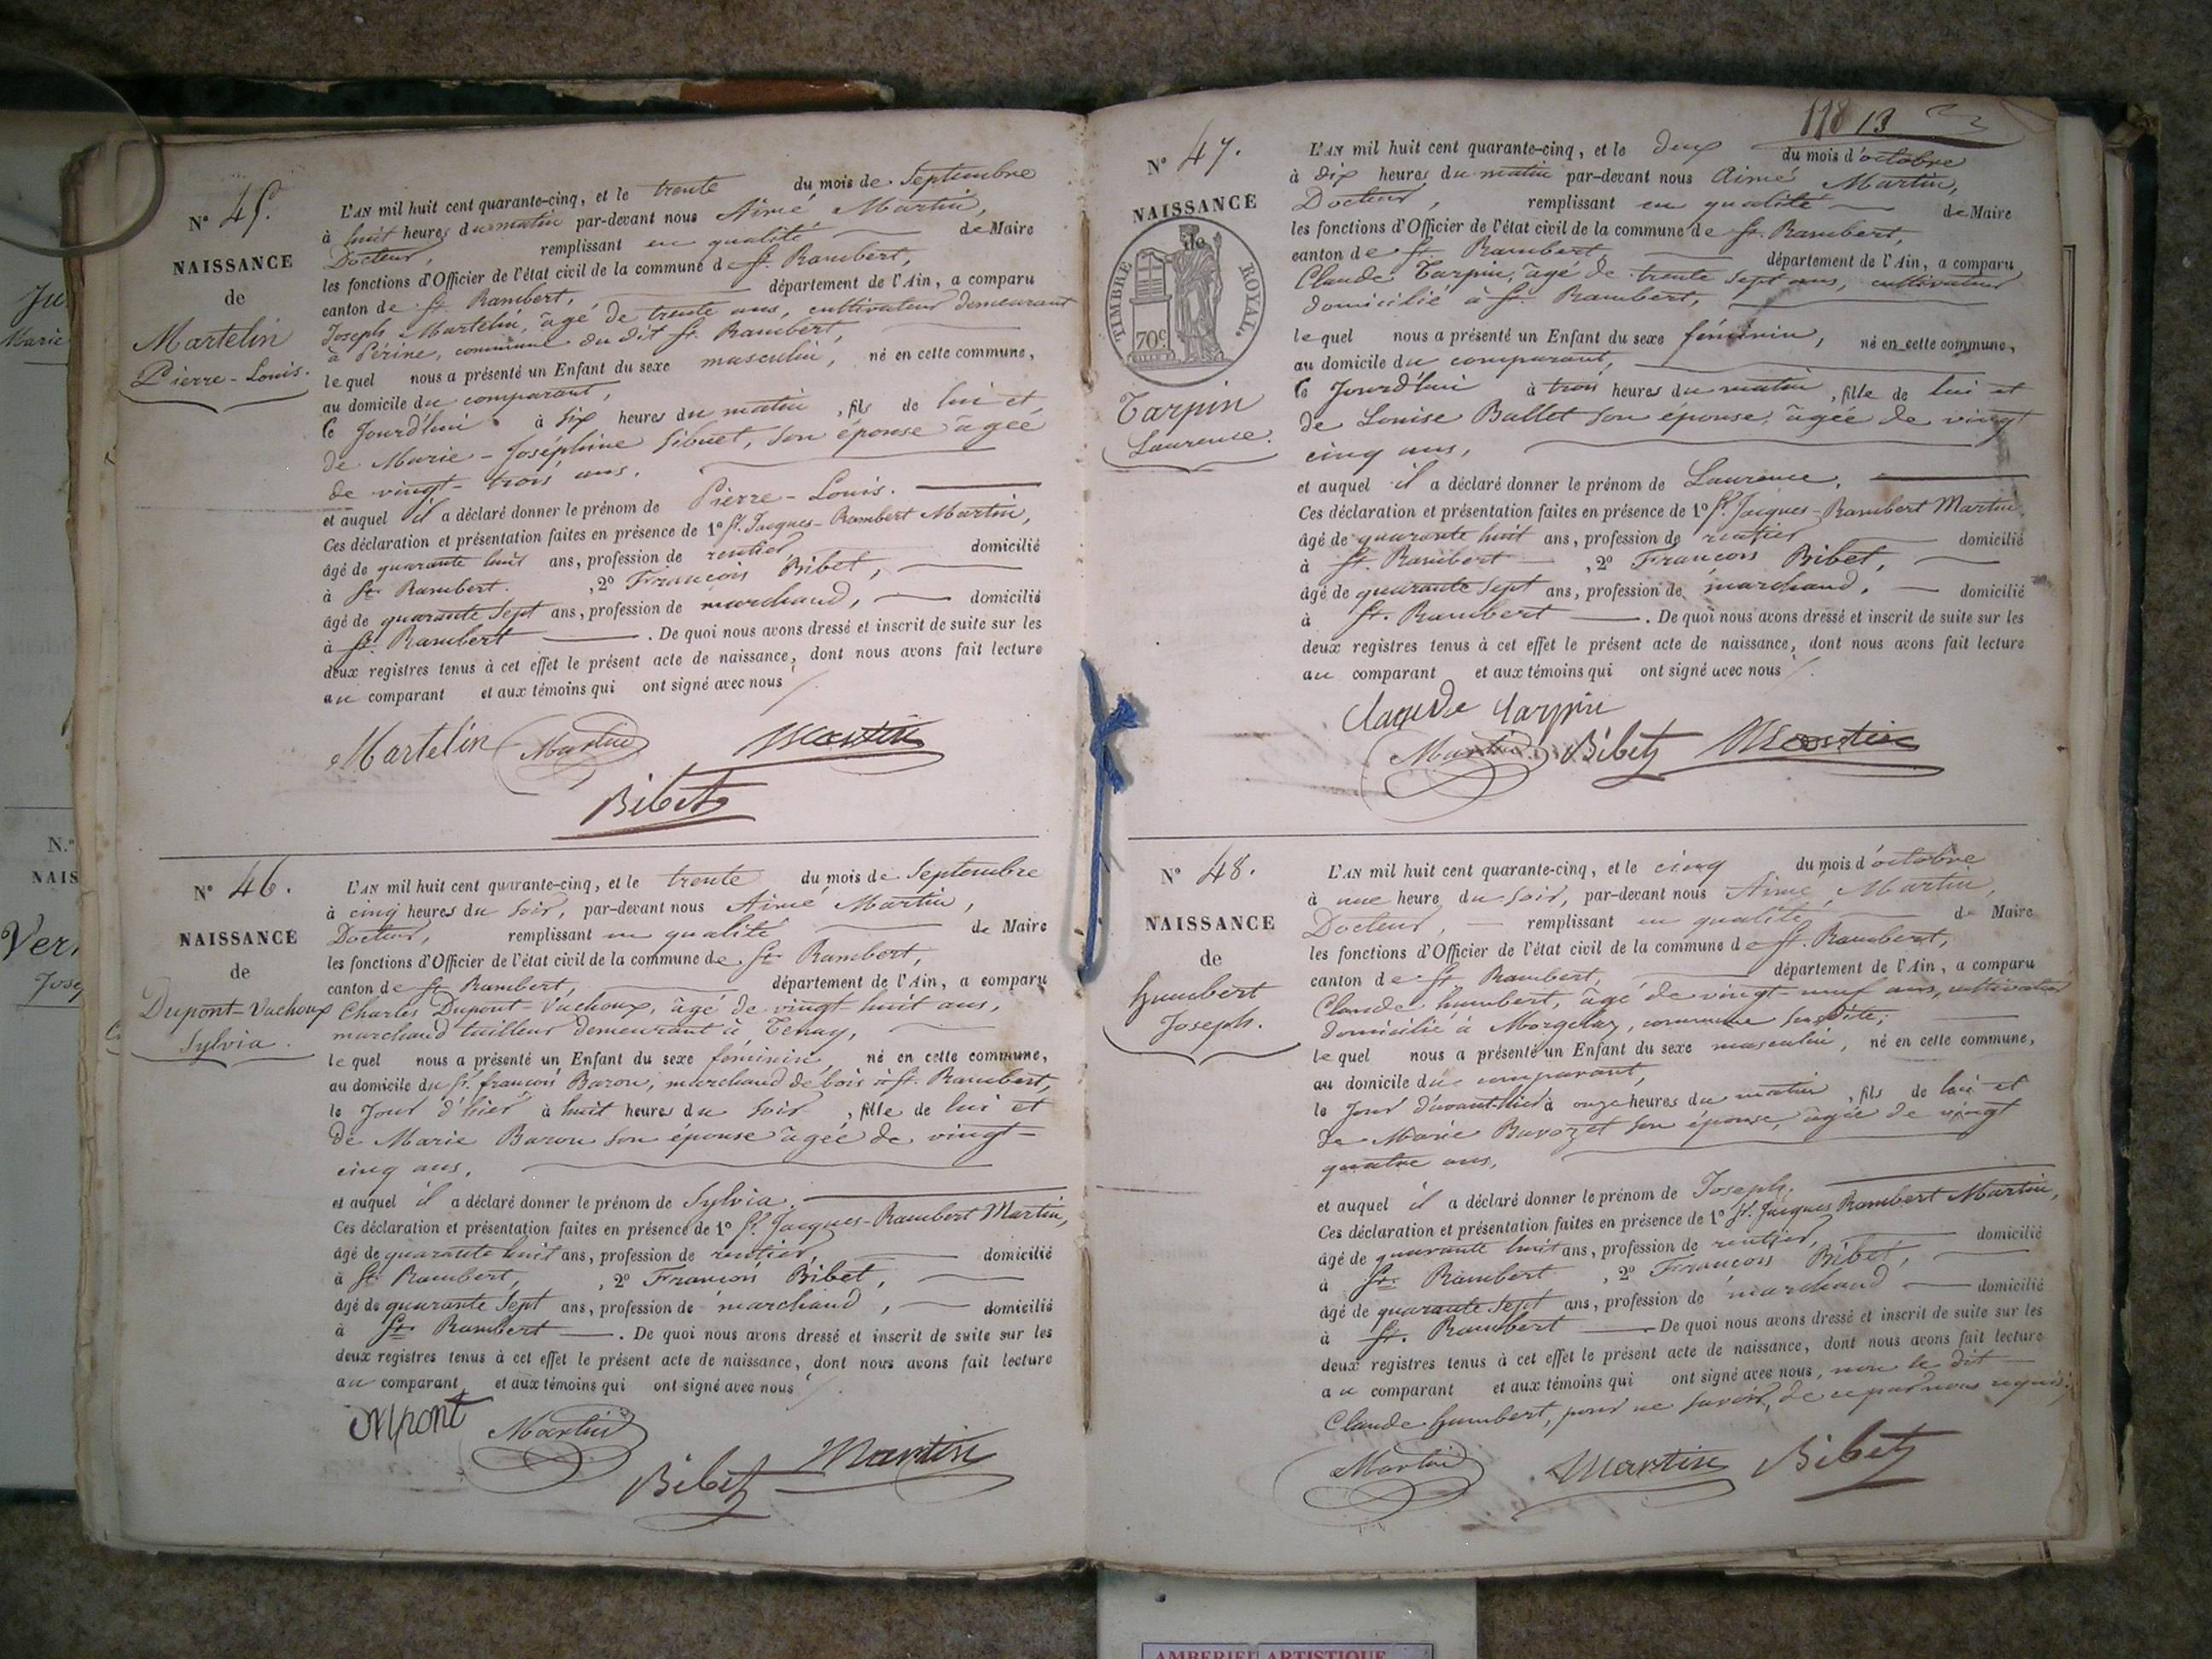 N° 45.
NAISSANCE
de
Martelin
Pierre-Louis.
L'AN mil huit cent quarante-cinq, et le trente du mois de Septembre
à huit heures du matin par-devant nous Aimé Martin,
Docteur, remplissant en qualité de Maire
les fonctions d'Officier de l'état civil de la commune de St. Rambert,
canton de St. Rambert, département de l'Ain, a comparu
Joseph Martelin, âgé de trente ans, cultivateur demeurant
à Périne, commune du dit St. Rambert,
lequel nous a présenté un Enfant du sexe masculin, né en cette commune,
au domicile du comparant,
ce Jourd'hui à six heures du matin, fils de lui et
de Marie-Joséphine Sibuet, son épouse âgée
de vingt-trois ans.
et auquel il a déclaré donner le prénom de Pierre-Louis.
Ces déclaration et présentation faites en présence de 1° Sr. Jacques-Rambert Martin,
âgé de quarante huit ans, profession de rentier, domicilié
à St. Rambert. , 2° François Bibet,
âgé de quarante sept ans, profession de marchand, domicilié
à St. Rambert . De quoi nous avons dressé et inscrit de suite sur les
deux registres tenus à cet effet le présent acte de naissance, dont nous avons fait lecture
au comparant et aux témoins qui ont signé avec nous
Martelin Martin Martin
Bibet
N° 46.
NAISSANCE
de
Dupont-Vachoux
Sylvia.
L'AN mil huit cent quarante-cinq, et le trente du mois de Septembre
à cinq heures du soir, par-devant nous Aimé Martin,
Docteur, remplissant en qualité de Maire
les fonctions d'Officier de l'état civil de la commune de St. Rambert,
canton de St. Rambert, département de l'Ain, a comparu
Charles Dupont-Vachoux, âgé de vingt-huit ans,
marchand tailleur demeurant à Tenay,
lequel nous a présenté un Enfant du sexe féminin, né en cette commune,
au domicile du Sr. françois Baron, marchand de bois à St. Rambert,
le Jour d'hier à huit heures du soir, fille de lui et
de Marie Baron son épouse âgée de vingt-
cinq ans,
et auquel il a déclaré donner le prénom de Sylvia.
Ces déclaration et présentation faites en présence de 1° Sr. Jacques-Rambert Martin,
âgé de quarante huit ans, profession de rentier, domicilié
à St. Rambert, , 2° François Bibet,
âgé de quarante sept ans, profession de marchand, domicilié
à St. Rambert . De quoi nous avons dressé et inscrit de suite sur les
deux registres tenus à cet effet le présent acte de naissance, dont nous avons fait lecture
au comparant et aux témoins qui ont signé avec nous
Dupont Martin
Bibet Martin
118 13
N° 47.
NAISSANCE
de
TIMBRE ROYAL.
70c.
Tarpin
Laurence.
L'AN mil huit cent quarante-cinq, et le deux du mois d'octobre
à dix heures du matin par-devant nous Aimé Martin,
Docteur, remplissant en qualité de Maire
les fonctions d'Officier de l'état civil de la commune de St. Rambert,
canton de St. Rambert, département de l'Ain, a comparu
Claude Tarpin, âgé de trente sept ans, cultivateur
domicilié à St. Rambert,
lequel nous a présenté un Enfant du sexe féminin, né en cette commune,
au domicile du comparant,
ce Jourd'hui à trois heures du matin, fille de lui et
de Louise Ballet son épouse, âgée de vingt
cinq ans,
et auquel il a déclaré donner le prénom de Laurence,
Ces déclaration et présentation faites en présence de 1° Sr. Jacques-Rambert Martin,
âgé de quarante huit ans, profession de rentier domicilié
à St. Rambert , 2° François Bibet,
âgé de quarante sept ans, profession de marchand, domicilié
à St. Rambert . De quoi nous avons dressé et inscrit de suite sur les
deux registres tenus à cet effet le présent acte de naissance, dont nous avons fait lecture
au comparant et aux témoins qui ont signé avec nous
Claude Tarpin
Martin Bibet Martin
N° 48.
NAISSANCE
de
humbert
Joseph.
L'AN mil huit cent quarante-cinq, et le cinq du mois d'octobre
à une heure du soir, par-devant nous Aimé Martin,
Docteur, remplissant en qualité de Maire
les fonctions d'Officier de l'état civil de la commune de St. Rambert,
canton de St. Rambert, département de l'Ain, a comparu
Claude humbert, âgé de vingt-neuf ans, cultivateur
domicilié à Morgelaz, commune susdite,
lequel nous a présenté un Enfant du sexe masculin, né en cette commune,
au domicile du comparant,
le Jour d'avant-hier à onze heures du matin, fils de lui et
de Marie Bavozet son épouse, âgée de vingt
quatre ans,
et auquel il a déclaré donner le prénom de Joseph.
Ces déclaration et présentation faites en présence de 1° Sr. Jacques Rambert Martin,
âgé de quarante huit ans, profession de rentier, domicilié
à St. Rambert , 2° François Bibet,
âgé de quarante sept ans, profession de marchand domicilié
à St. Rambert . De quoi nous avons dressé et inscrit de suite sur les
deux registres tenus à cet effet le présent acte de naissance, dont nous avons fait lecture
au comparant et aux témoins qui ont signé avec nous, non le dit
Claude humbert, pour ne savoir, de ce par nous requis.
Martin Martin Bibet
AMBERIEU ARTISTIQUE